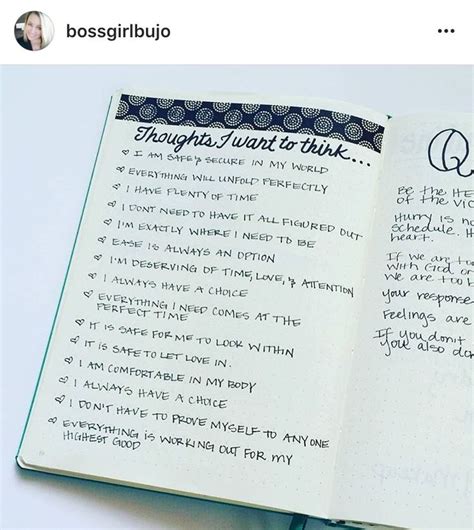 bossgirlbujo
Thoughts I want to think...
I AM SAFE & SECURE IN MY WORLD
EVERYTHING WILL UNFOLD PERFECTLY
I HAVE PLENTY OF TIME
I DONT NEED TO HAVE IT ALL FIGURED OUT
I'M EXACTLY WHERE I NEED TO BE
EASE IS ALWAYS AN OPTION
I'M DESERVING OF TIME, LOVE, & ATTENTION
I ALWAYS HAVE A CHOICE
EVERYTHING I NEED COMES AT THE
PERFECT TIME
IT IS SAFE FOR ME TO LOOK WITHIN
IT IS SAFE TO LET LOVE IN.
I AM COMFORTABLE IN MY BODY
I ALWAYS HAVE A CHOICE
I DON'T HAVE TO PROVE MYSELF TO ANYONE
EVERYTHING IS WORKING OUT FOR MY
HIGHEST GOOD
Q
Be the HE
of the VIC
Hurry is no
schedule. H
heart.
If we are
with God
we are too
your response
Feelings are
If you don't
you also